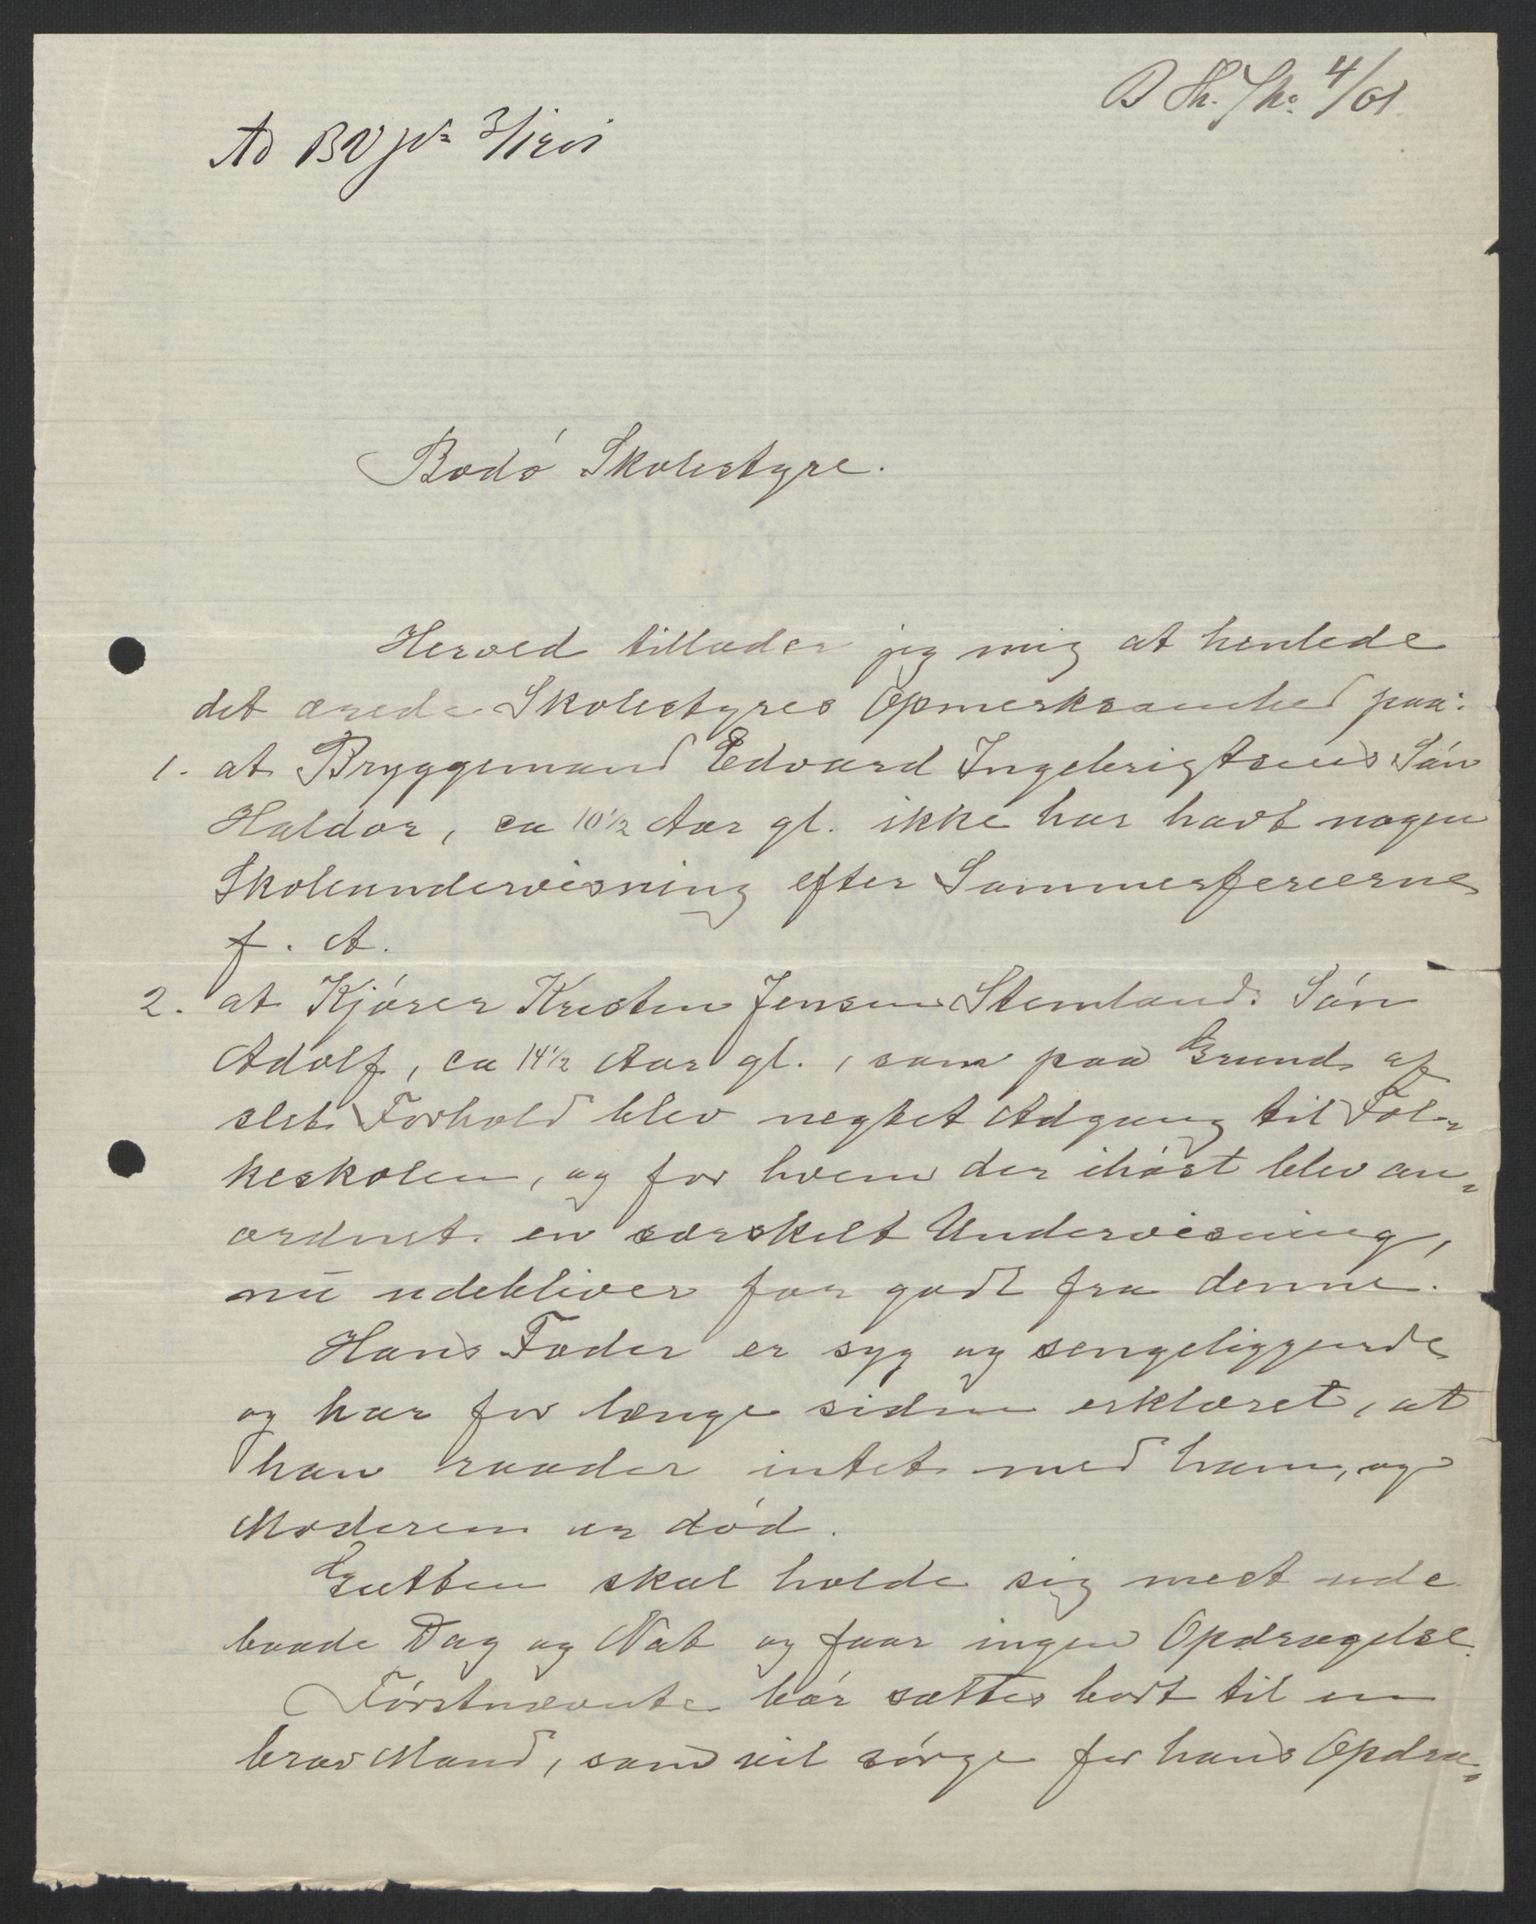 B Sk. Jk. 4/01.
Ad BV JNo 3/1901
Bodó Skolestyre.
Herved tillader jeg mig at henlede
det ærede Skolestyres Opmerksomhed paa:
1. at Bryggemand Edvard Ingebrigtsens Són
Haldor, ca 10½ Aar gl. ikke har havt nogen
Skoleundervisning efter Sommerferierne
f. A.
2. at Kjórer Kristen Jensen Stemlands Són
Adolf, ca 14½ Aar gl., som paa Grund af
slet Forhold blev negtet Adgang til Fol-
keskolen, og for hvem der ihóst blev an-
ordnet en særskilt Undervisning,
nu udebliver for godt fra denne.
Hans Fader er syg og sengeliggende
og har for længe siden erklæret, at
han raader intet med ham, og
Moderen er dód.
Gutten skal holde sig mest ude
baade Dag og Nat og faar ingen Opdragelse.
Fórstnævnte bór sættes bort til en
brav Mand, som vil sórge for hans Opdra-